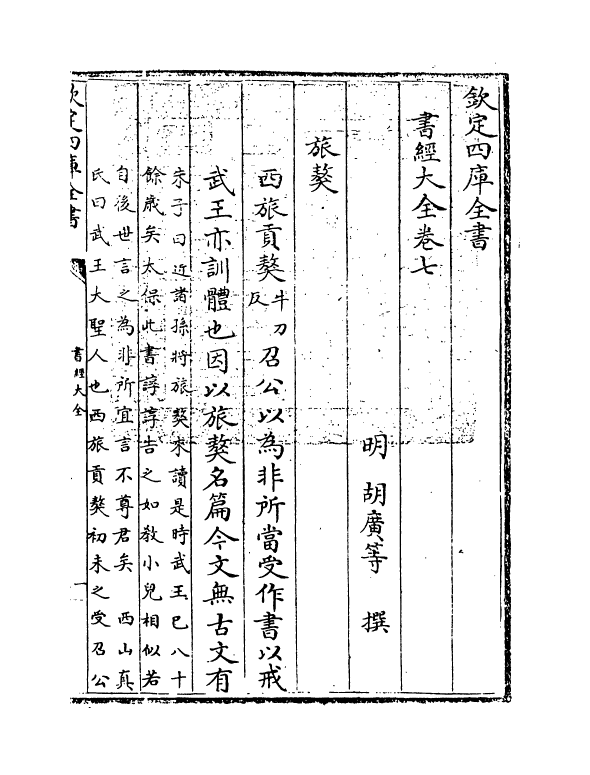 欽定四庫全書
書經大全卷七
明 胡廣等 撰
旅獒
西旅貢獒牛刀反召公以為非所當受作書以戒
武王亦訓體也因以旅獒名篇今文無古文有
朱子曰近諸孫將旅獒來讀是時武王已八十
餘歲矣太保此書諄諄告之如教小兒相似若
自後世言之為非所宜言不尊君矣 西山真
氏曰武王大聖人也西旅貢獒初未之受召公
欽定四庫全書
書經大全
一